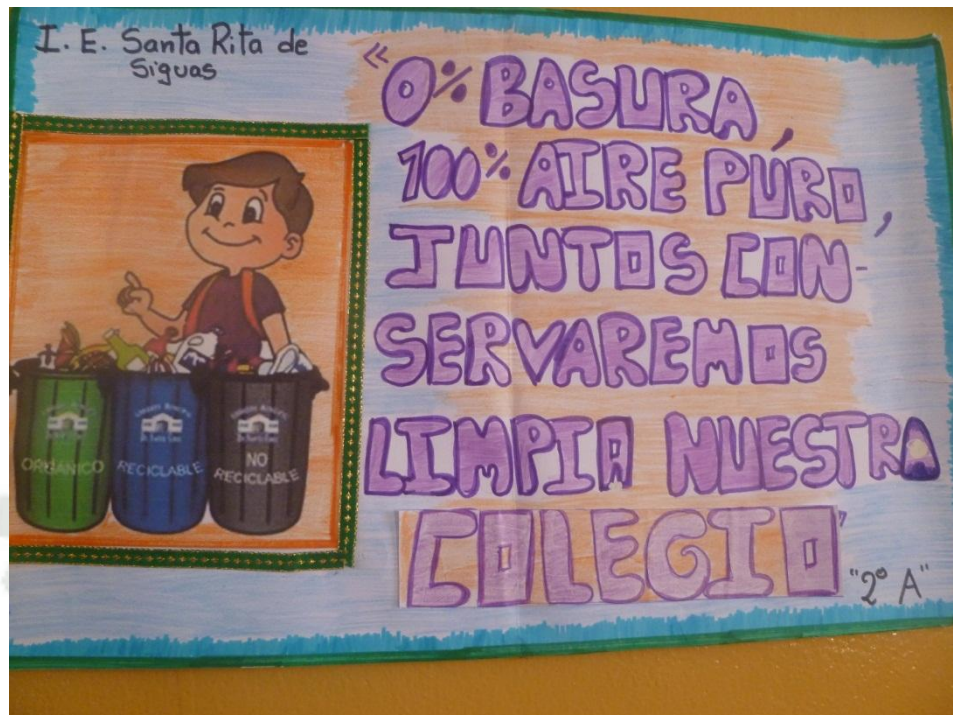 I. E. Santa Rita de
Siguas
“0% BASURA,
100% AIRE PURO,
JUNTOS CON-
SERVAREMOS
LIMPIA NUESTRA
COLEGIO”
"2° A"
ORGÁNICO
RECICLABLE
NO
RECICLABLE